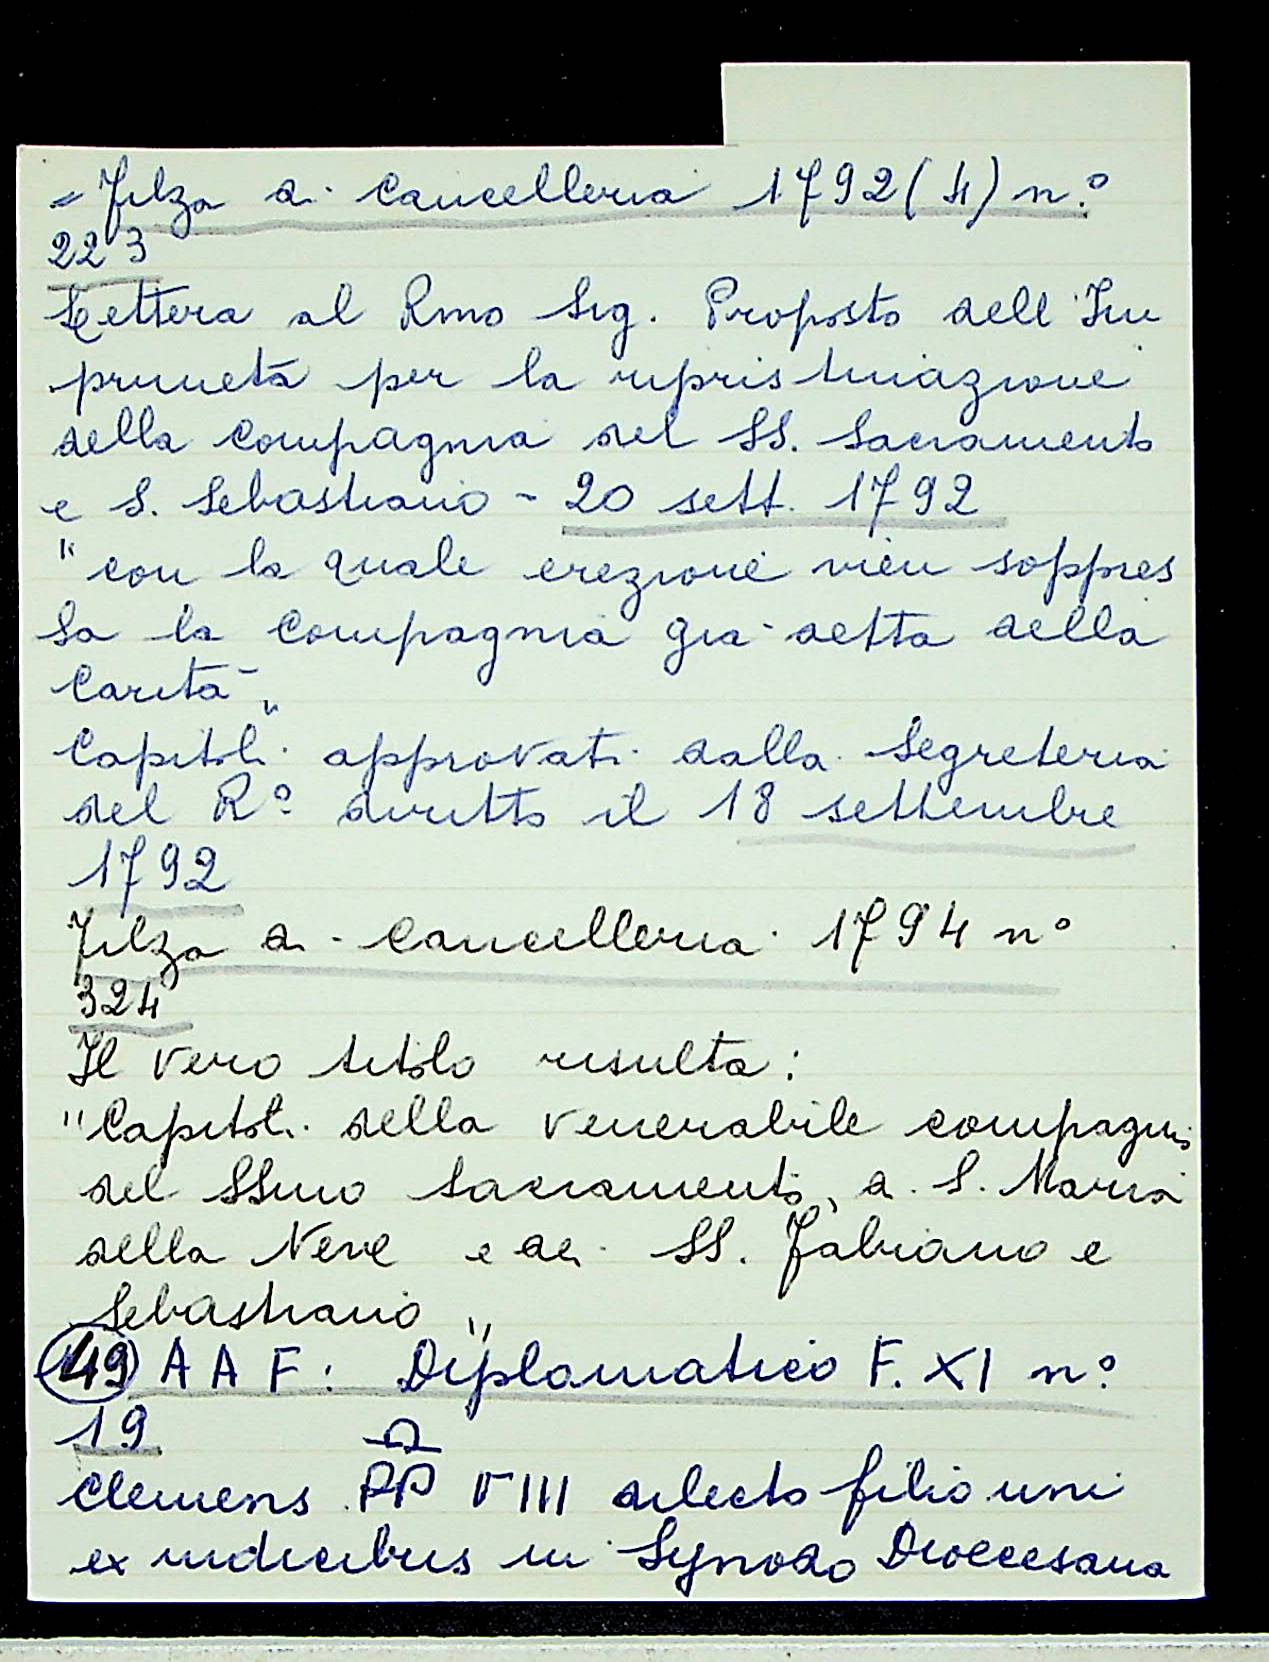 = Filza di Cancelleria 1792 (4) n.°
223
Lettera al Rmo Sig. Proposto dell'Im
pruneta per la ripristinazione
della compagnia del SS. Sacramento
e S. Sebastiano - 20 sett. 1792
"con la quale erezione vien soppres
sa la Compagnia già detta della
Carità"
Capitoli approvati dalla Segreteria
del R.° diritto il 18 settembre
1792
Filza di Cancelleria 1794 n°
324
Il vero titolo risulta:
"Capitoli della venerabile compagnia
del SSmo Sacramento, di S. Maria
della Neve e dei SS. Fabiano e
Sebastiano"
49 A A F: Diplomatico F. XI n.°
19
Clemens PP VIII dilecto filio uni
ex iudicibus in Synodo Dioecesana